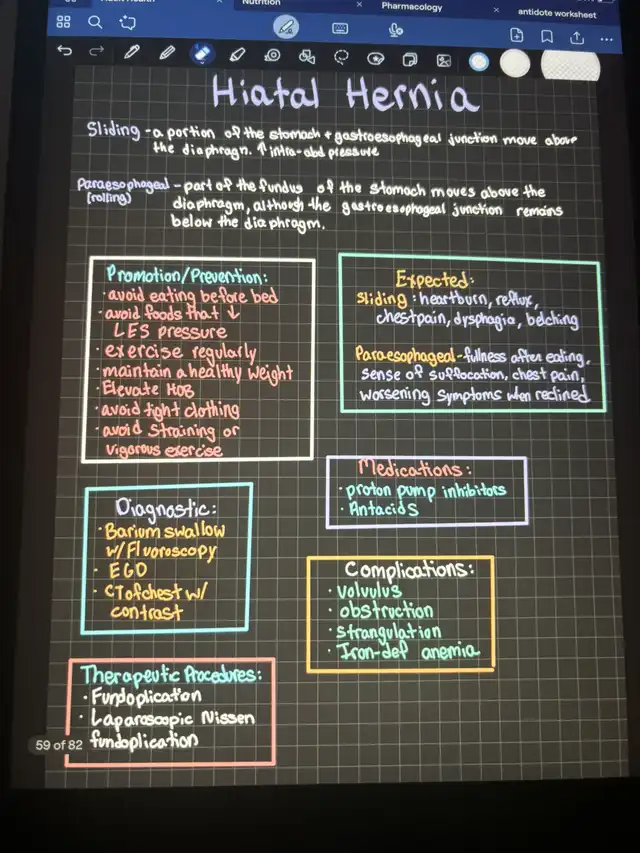 Nutrition
Pharmacology
antidote worksheet
Hiatal Hernia
Sliding - a portion of the stomach + gastroesophageal junction move above
the diaphragm. ↑ intra-abd pressure
Paraesophageal - part of the fundus of the stomach moves above the
(rolling)
diaphragm, although the gastroesophageal junction remains
below the diaphragm.
Promotion/Prevention:
· avoid eating before bed
· avoid foods that ↓
LES pressure
· exercise regularly
· maintain a healthy weight
· Elevate HOB
· avoid tight clothing
· avoid straining or
vigorous exercise
Expected:
Sliding: heartburn, reflux,
chest pain, dysphagia, belching
Paraesophageal - fullness after eating,
sense of suffocation, chest pain,
worsening symptoms when reclined
Medications:
· proton pump inhibitors
· Antacids
Diagnostic:
· Barium swallow
w/ Fluoroscopy
· EGD
· CT of chest w/
contrast
Complications:
· volvulus
· obstruction
· strangulation
· Iron-def anemia
Therapeutic Procedures:
· Fundoplication
· Laparoscopic Nissen
fundoplication
59 of 82